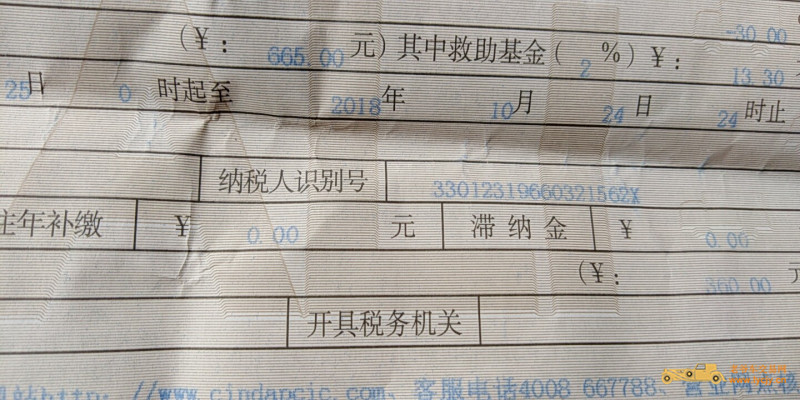 -30.00
(¥: 665.00 元) 其中救助基金( 2 %) ¥: 13.30
25日 0 时起至 2018年 10月 24日 24时止
纳税人识别号 33012319660321562X
往年补缴 ¥ 0.00 元 滞纳金 ¥ 0.00
(¥: 360.00 元
开具税务机关
http: //www.cjndancic.com、客服电话4008 667788、营业网点